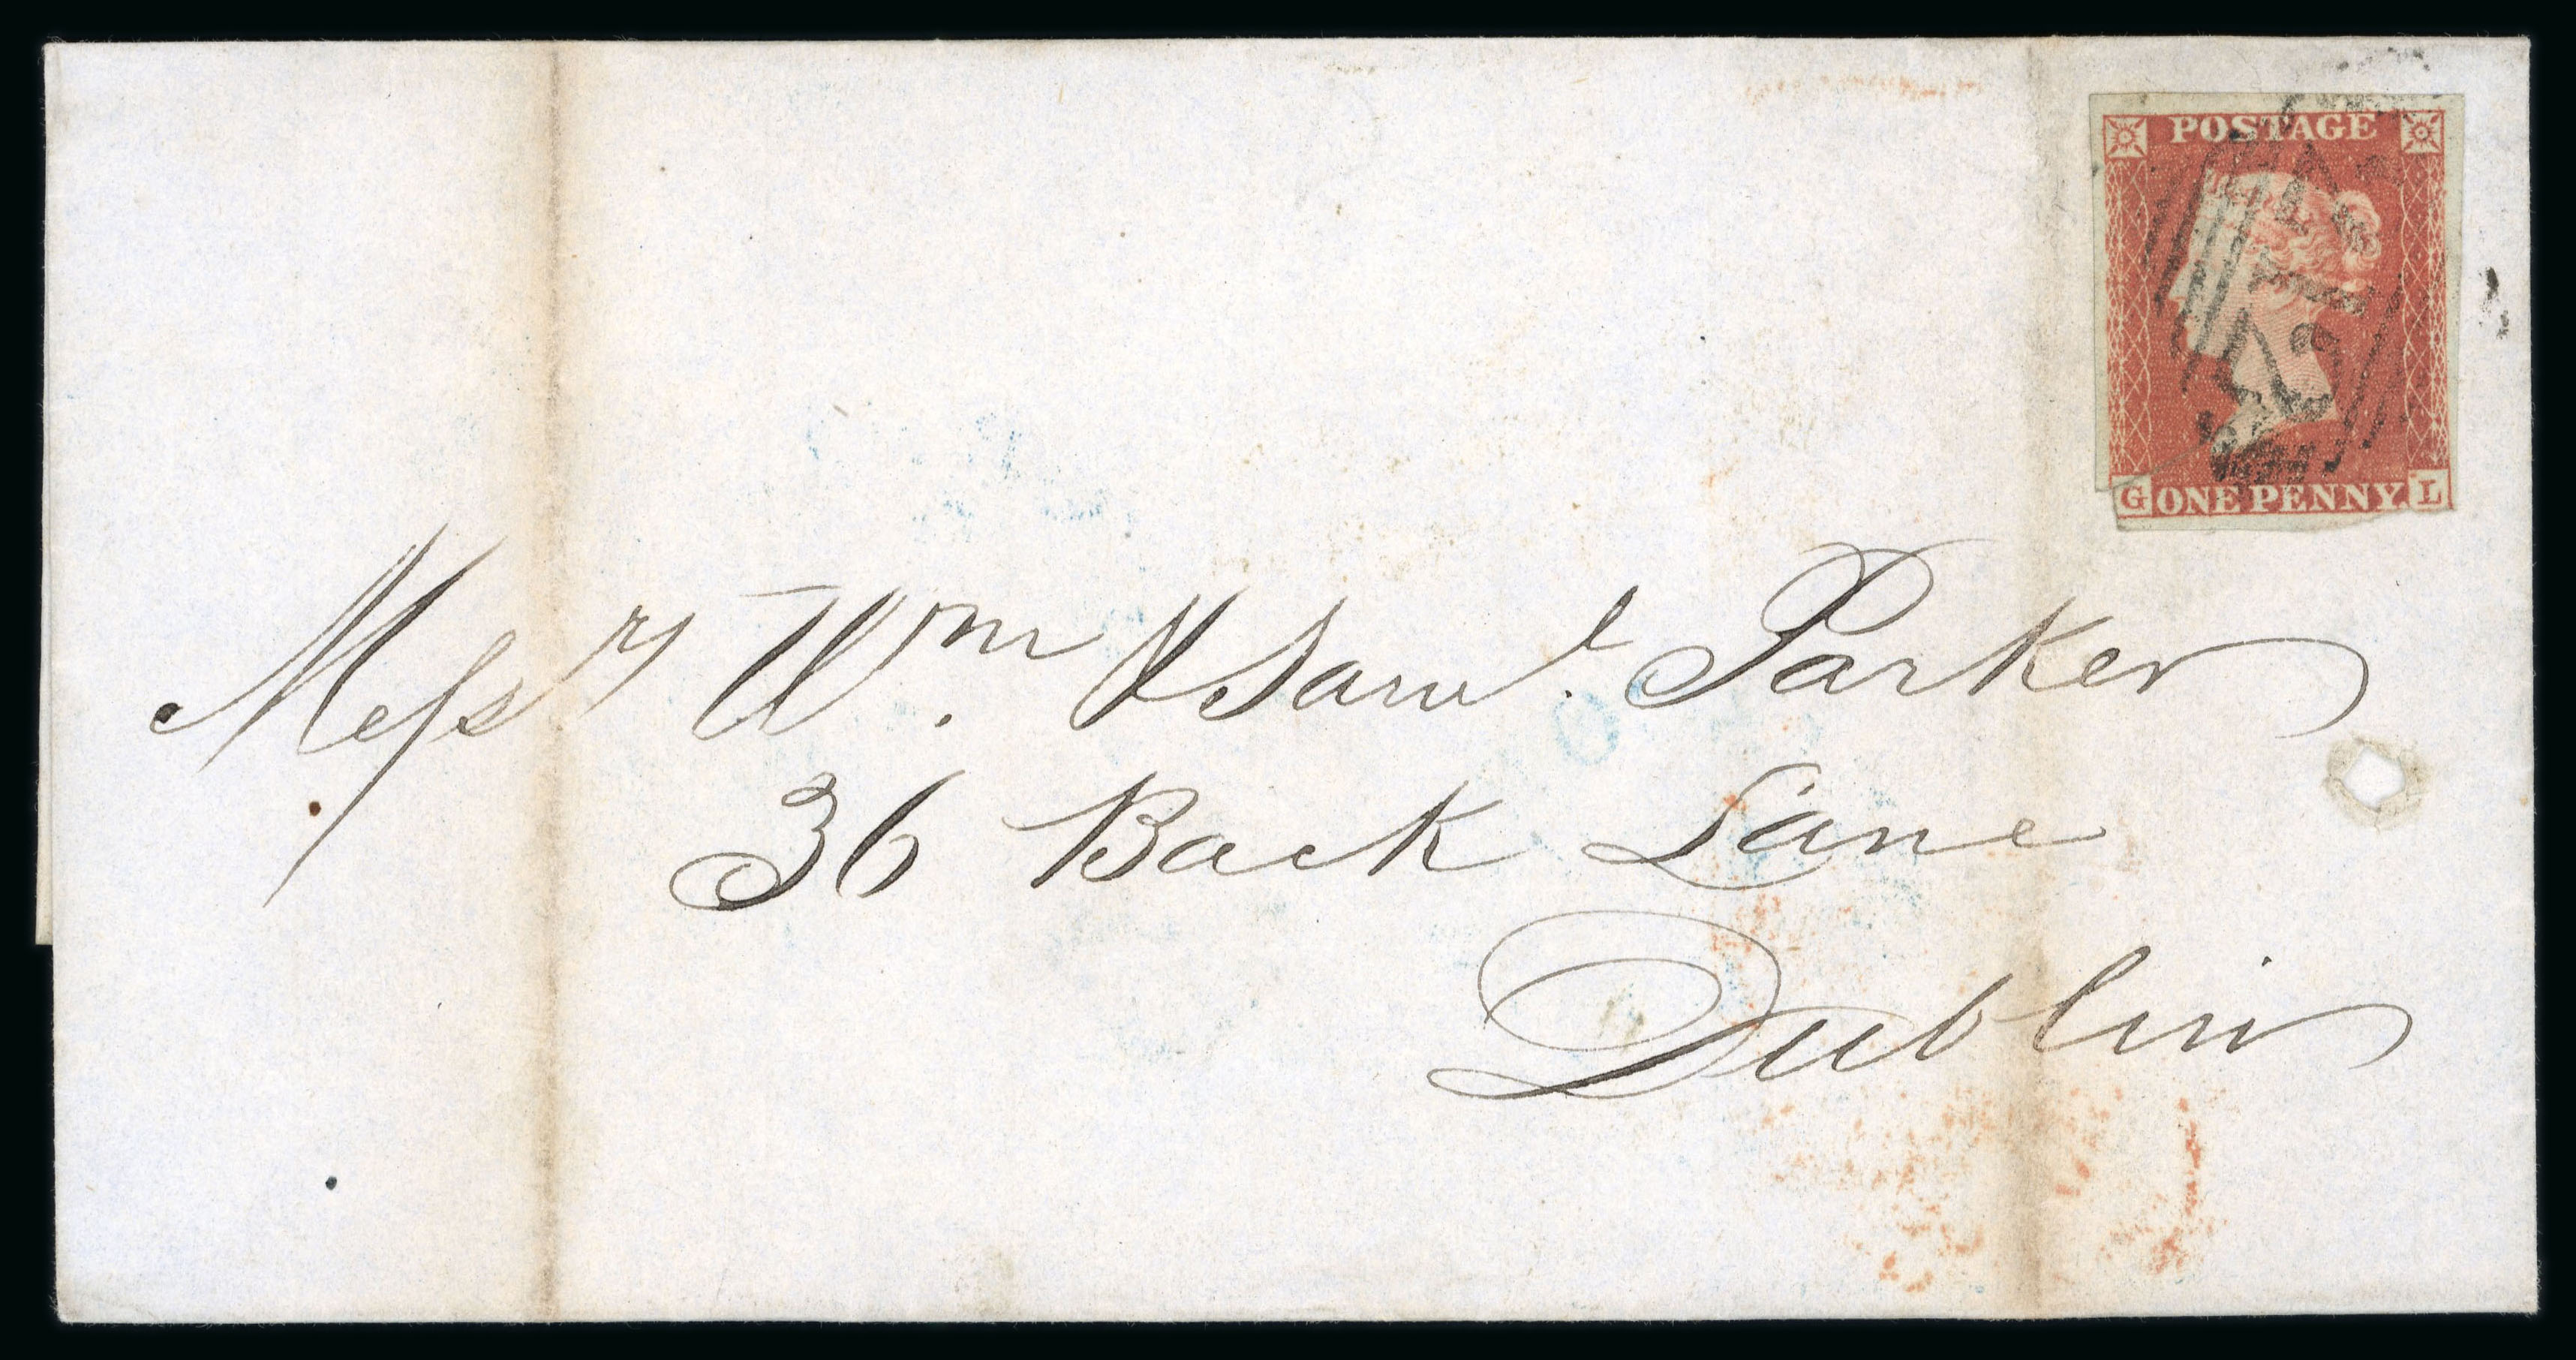 POSTAGE
G ONE PENNY. L
Messrs Wm. & Saml. Parker
36 Back Lane
Dublin